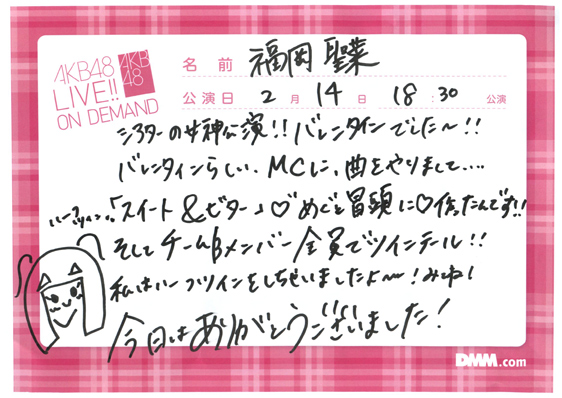 AKB48
LIVE!!
ON DEMAND
AKB
48
名前 福岡 聖菜
公演日 2月 14日 18:30 公演
シアターの女神公演!!バレンタインでした〜!!
バレンタインらしい、MCに、曲をやりまして....
ハーフツイン。
「スイート&ビター」♡めぐと冒頭に♡作ったんです!!
そしてチームBメンバー全員でツインテール!!
私はハーフツインをしちゃいましたよ〜!
今日はありがとうございました!
DMM.com